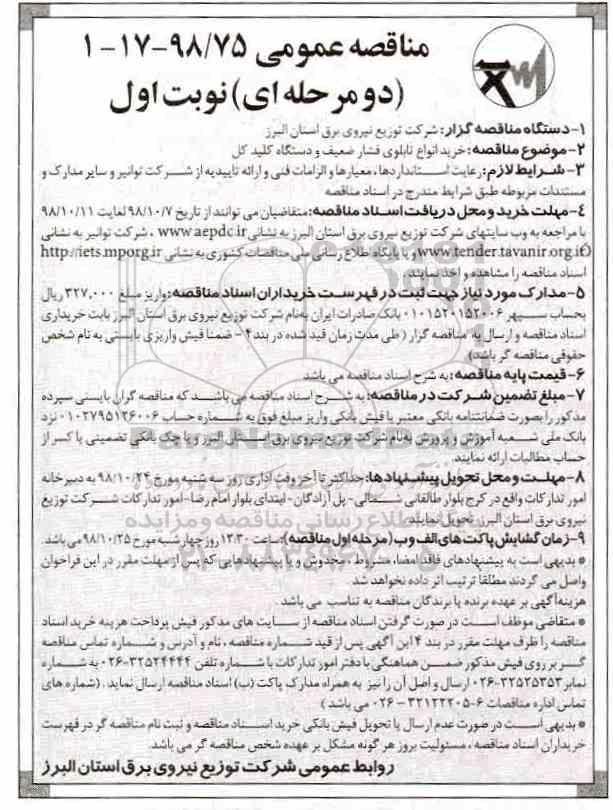 مناقصه عمومی ۹۸/۷۵-۱۷-۱
(دو مرحله ای) نوبت اول
۱-دستگاه مناقصه گزار: شرکت توزیع نیروی برق استان البرز
۲-موضوع مناقصه: خرید انواع تابلوی فشار ضعیف و دستگاه کلید کل
۳- شرایط لازم: رعایت استانداردها، معیارها و الزامات فنی و ارائه تاییدیه از شرکت توانیر و سایر مدارک و
مستندات مربوطه طبق شرایط مندرج در اسناد مناقصه
۴-مهلت خرید و محل دریافت اسناد مناقصه: متقاضیان می توانند از تاریخ ۹۸/۱۰/۷ لغایت ۹۸/۱۰/۱۱
با مراجعه به وب سایتهای شرکت توزیع نیروی برق استان البرز به نشانی www.aepdc.ir ، شرکت توانیر به نشانی
www.tender.tavanir.org.ir و یا پایگاه طلاع رسانی ملی مناقصات کشوری به نشانی http://iets.mporg.ir
اسناد مناقصه را مشاهده و اخذ نمایند.
۵-مدارک مورد نیاز جهت ثبت در فهرست خریداران اسناد مناقصه: واریز مبلغ ۳۲۷,۰۰۰ ریال
بحساب سپهر ۰۱۰۱۵۲۰۱۵۲۰۰۶ بانک صادرات ایران به‌نام شرکت توزیع نیروی برق استان البرز بابت خریداری
اسناد مناقصه و ارسال به مناقصه گزار (طی مدت زمان قید شده در بند ۴ - ضمنا فیش واریزی بایستی به نام شخص
حقوقی مناقصه گر باشد)
۶-قیمت پایه مناقصه: به شرح اسناد مناقصه می باشد
۷-مبلغ تضمین شرکت در مناقصه: به شرح اسناد مناقصه می باشند که مناقصه گران بایستی سپرده
مذکور را بصورت ضمانتنامه بانکی معتبر یا فیش بانکی واریز مبلغ فوق به شماره حساب ۰۱۰۲۷۹۵۱۲۶۰۰۶ نزد
بانک ملی شعبه آموزش و پرورش به‌نام شرکت توزیع نیروی برق استان البرز و یا چک بانکی تضمینی یا کسر از
حساب مطالبات ارائه نمایند.
۸-مهلت و محل تحویل پیشنهادها: حداکثر تا آخر وقت اداری روز سه شنبه مورخ ۹۸/۱۰/۲۴ به دبیرخانه
امور تدارکات واقع در کرج بلوار طالقانی شمالی- پل آزادگان- ابتدای بلوار امام رضا- امور تدارکات شرکت توزیع
نیروی برق استان البرز تحویل نمایند.
۹-زمان گشایش پاکت های الف و ب (مرحله اول مناقصه): ساعت ۱۳:۳۰ روز چهارشنبه مورخ ۹۸/۱۰/۲۵ می باشد.
* بدیهی است به پیشنهادهای فاقد امضاء، مشروط ، مخدوش و یا پیشنهادهایی که پس از مهلت مقرر در این فراخوان
واصل می گردند مطلقا ترتیب اثر داده نخواهد شد.
هزینه آگهی بر عهده برنده یا برندگان مناقصه به تناسب می باشد.
* متقاضی موظف است در صورت گرفتن اسناد مناقصه از سایت های مذکور فیش پرداخت هزینه خرید اسناد
مناقصه را ظرف مهلت مقرر در بند ۴ این آگهی پس از قید شماره مناقصه ، نام و آدرس و شماره تماس مناقصه
گر بر روی فیش مذکور ضمن هماهنگی با دفتر امور تدارکات با شماره تلفن ۳۲۵۲۴۴۴۴-۰۲۶ به شماره
نمابر ۳۲۵۲۵۳۵۳-۰۲۶ ارسال و اصل آن را نیز به همراه مدارک پاکت (ب) اسناد مناقصه ارسال نماید . (شماره های
تماس اداره مناقصات ۶-۳۲۱۲۲۲۰۵ - ۰۲۶ می باشد)
* بدیهی است در صورت عدم ارسال یا تحویل فیش بانکی خرید اسناد مناقصه و ثبت نام مناقصه گر در فهرست
خریداران اسناد مناقصه ، مسئولیت بروز هر گونه مشکل بر عهده شخص مناقصه گر می باشد.
روابط عمومی شرکت توزیع نیروی برق استان البرز